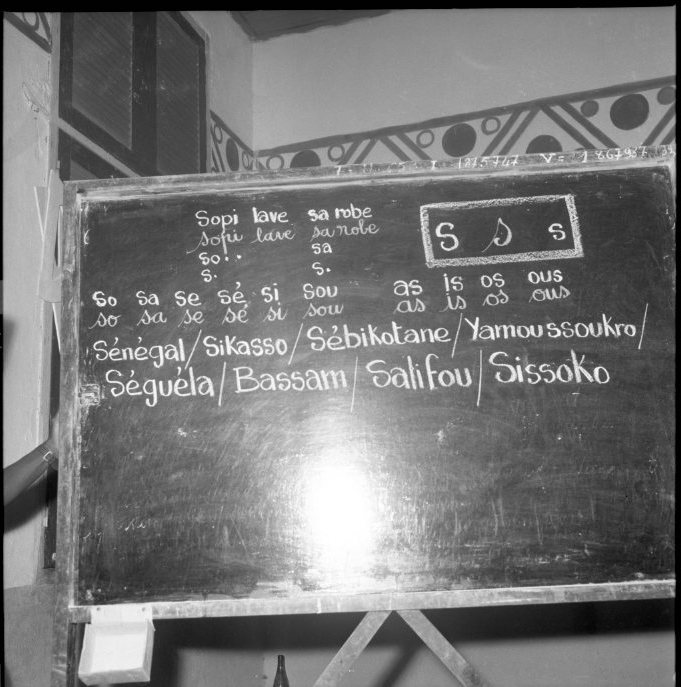 1275747 V =
Sopi lave sa robe
sopi lave sa robe
so.. sa
s. s.
S s s
so sa se sé si sou as is os ous
so sa se sé si sou as is os ous
Sénégal/Sikasso/Sébikotane/Yamoussoukro/
Séguéla/Bassam/Salifou/Sissoko